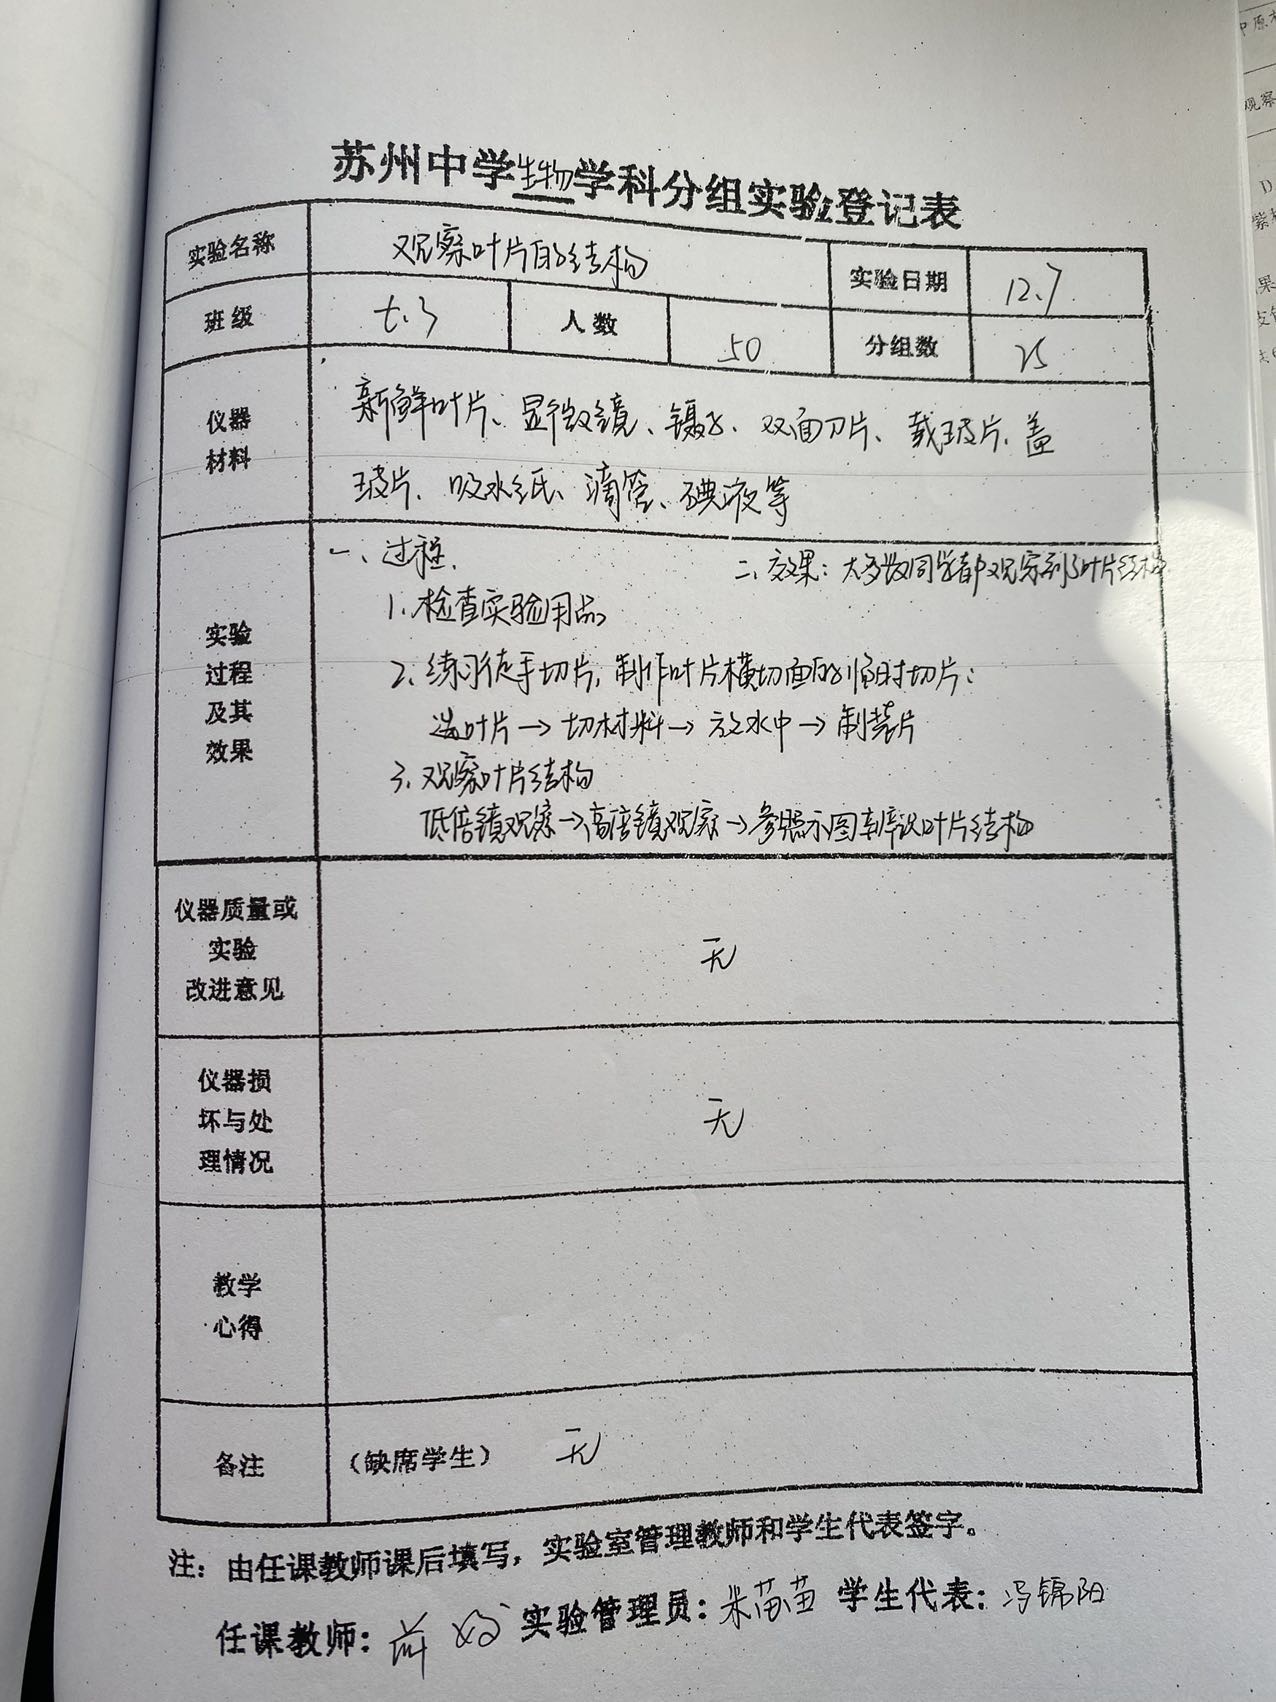 苏州中学生物学科分组实验登记表
实验名称 观察叶片的结构 实验日期 12.7
班级 七.3 人数 50 分组数 25
仪器材料 新鲜叶片、显微镜、镊子、双面刀片、载玻片、盖
玻片、吸水纸、滴管、碘液等
实验过程及其效果
一、过程.
二、效果：大多数同学都观察到了叶片结构
1、检查实验用品
2、练习徒手切片，制作叶片横切面的临时切片：
选叶片→切材料→放水中→制装片
3、观察叶片结构
低倍镜观察→高倍镜观察→参照示图识叶片结构
仪器质量或实验改进意见 无
仪器损坏与处理情况 无
教学心得
备注 （缺席学生） 无
注：由任课教师课后填写，实验室管理教师和学生代表签字。
任课教师： 实验管理员：米苗苗 学生代表：冯锦阳
中原
观察
D
紫
果